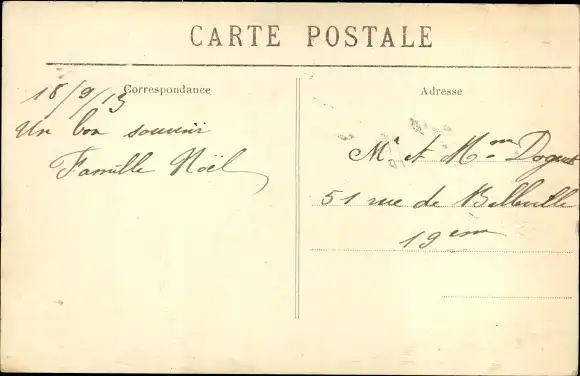 CARTE POSTALE
Correspondance
18/9/13
Un bon souvenir
Famille Noël
Adresse
Mr et Mme
51 rue de Belleville
19ème